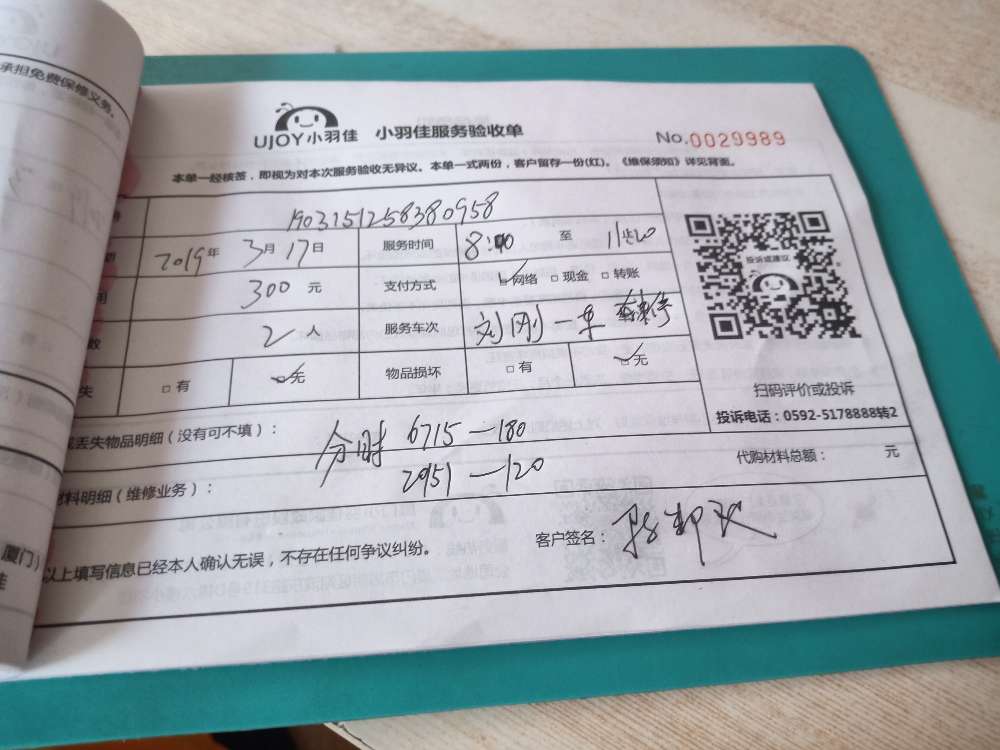 承担免费保修义务。
UJOY小羽佳 小羽佳服务验收单 No.0029989
本单一经核签，即视为对本次服务验收无异议。本单一式两份，客户留存一份(红)。《维保须知》详见背面。
1903151258380958
2019年 3月17日 服务时间 8:00 至
300 元 支付方式 网络 现金 转账
2 人 服务车次 刘刚一车
失 有 无 物品损坏 有 无
投诉或建议
扫码评价或投诉
投诉电话：0592-5178888转2
丢失物品明细（没有可不填）： 分时 6715—180
2951—120
材料明细（维修业务）： 代购材料总额： 元
以上填写信息已经本人确认无误，不存在任何争议纠纷。 客户签名：
厦门）
佳